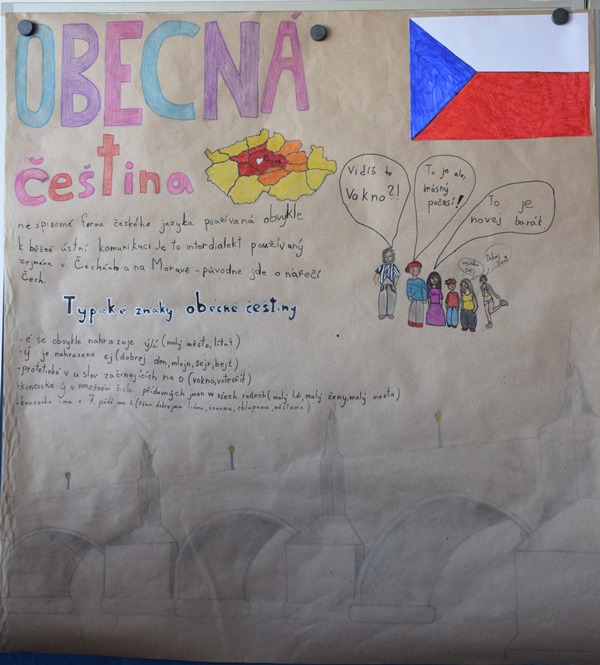 OBECNÁ
čeština
nespisovné forma českého jazyka používaná obvykle
k běžné ústní komunikaci. Je to interdialekt používaný
zejména v Čechách a na Moravě - původně jde o nářečí
Čech.
Vidíš to
vokno?!
To je ale,
krásný
počasí!
To je
novej barák
Dobrej
Typické znaky obecné češtiny
• é se obvykle nahrazuje ý/í (malý město, lítat)
• ý je nahrazeno ej (dobrej den, mlejn, sejr, bejt)
• protetické v u slov začínajících na o (vokno, votevřít)
• koncovka ý v množném čísle přídavných jmen ve všech rodech (malý lidi, malý ženy, malý města)
• koncovka -ma v 7. pádě mn. č. (těma dobrejma lidma, ženama, chlapama, městama)